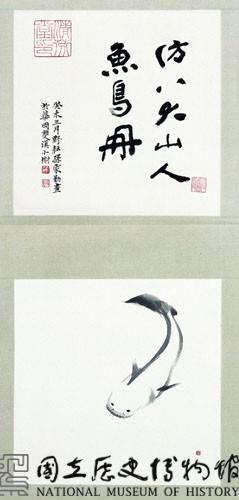 仿八大山人
魚鳥冊
癸未三月野牧孫家勤畫
於華岡雙溪小樹
國立歷史博物館
NATIONAL MUSEUM OF HISTORY